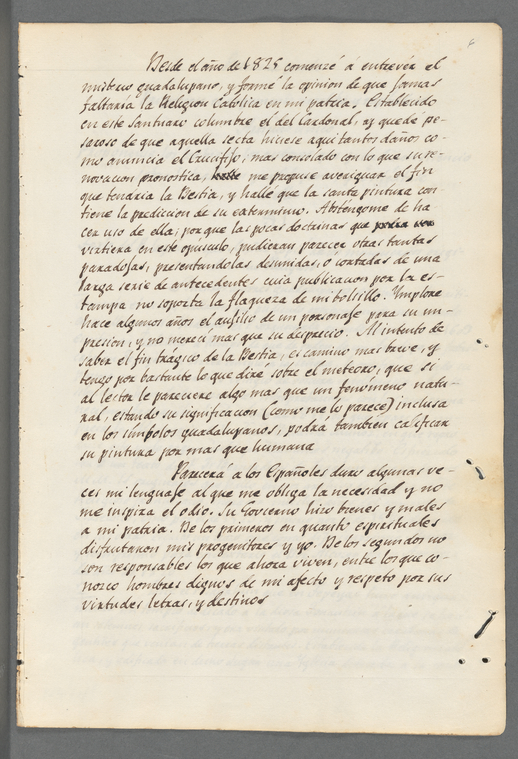 Desde el año de 1825 comenzé á entrevér el
misterio guadalupano, y formé la opinion de que jamas
faltaria la Religion Catolica en mi patria. Establecido
en este Santuario columbre el del Cardonal, ay quede pe-
saroso de que aquella secta hiciese aqui tantos daños co-
mo anuncia el Crucifijo; mas consolado con lo que su re-
novacion pronostica, me propuse averiguar el fin
que tendria la Bestia, y hallé que la santa pintura con
tiene la prediccion de su exterminio. Abstengome de ha
cer uso de ella; porque las pocas doctrinas que
virtiera en este opúsculo, pudieran parecer otras tantas
paradojas, presentandolas desunidas, o cortadas de una
larga serie de antecedentes cuia publicacion por la es-
tampa no soporta la flaqueza de mi bolsillo. Ymploré
hace algunos años el ausilio de un personaje para su im-
presion, y no mereci mas que su desprecio. Al intento de
saber el fin trágico de la Bestia, es camino mas breve, y
tengo por bastante lo que diré sobre el meteoro, que si
al lector le pareciere algo mas que un fenomeno natu-
ral, estando su significacion (como me lo parece) inclusa
en los simbolos guadalupanos, podrá tambien calificar
su pintura por mas que humana
Parecerá a los Españoles duro algunas ve-
ces mi lenguaje al que me obliga la necesidad y no
me inspira el odio. Su Govierno hizo bienes y males
a mi patria. De los primeros en quanto espirituales
disfrutaron mis progenitores y yo. De los segundos no
son responsables los que ahora viven, entre los que co-
nozco hombres dignos de mi afecto y respeto por sus
virtudes letras, y destinos